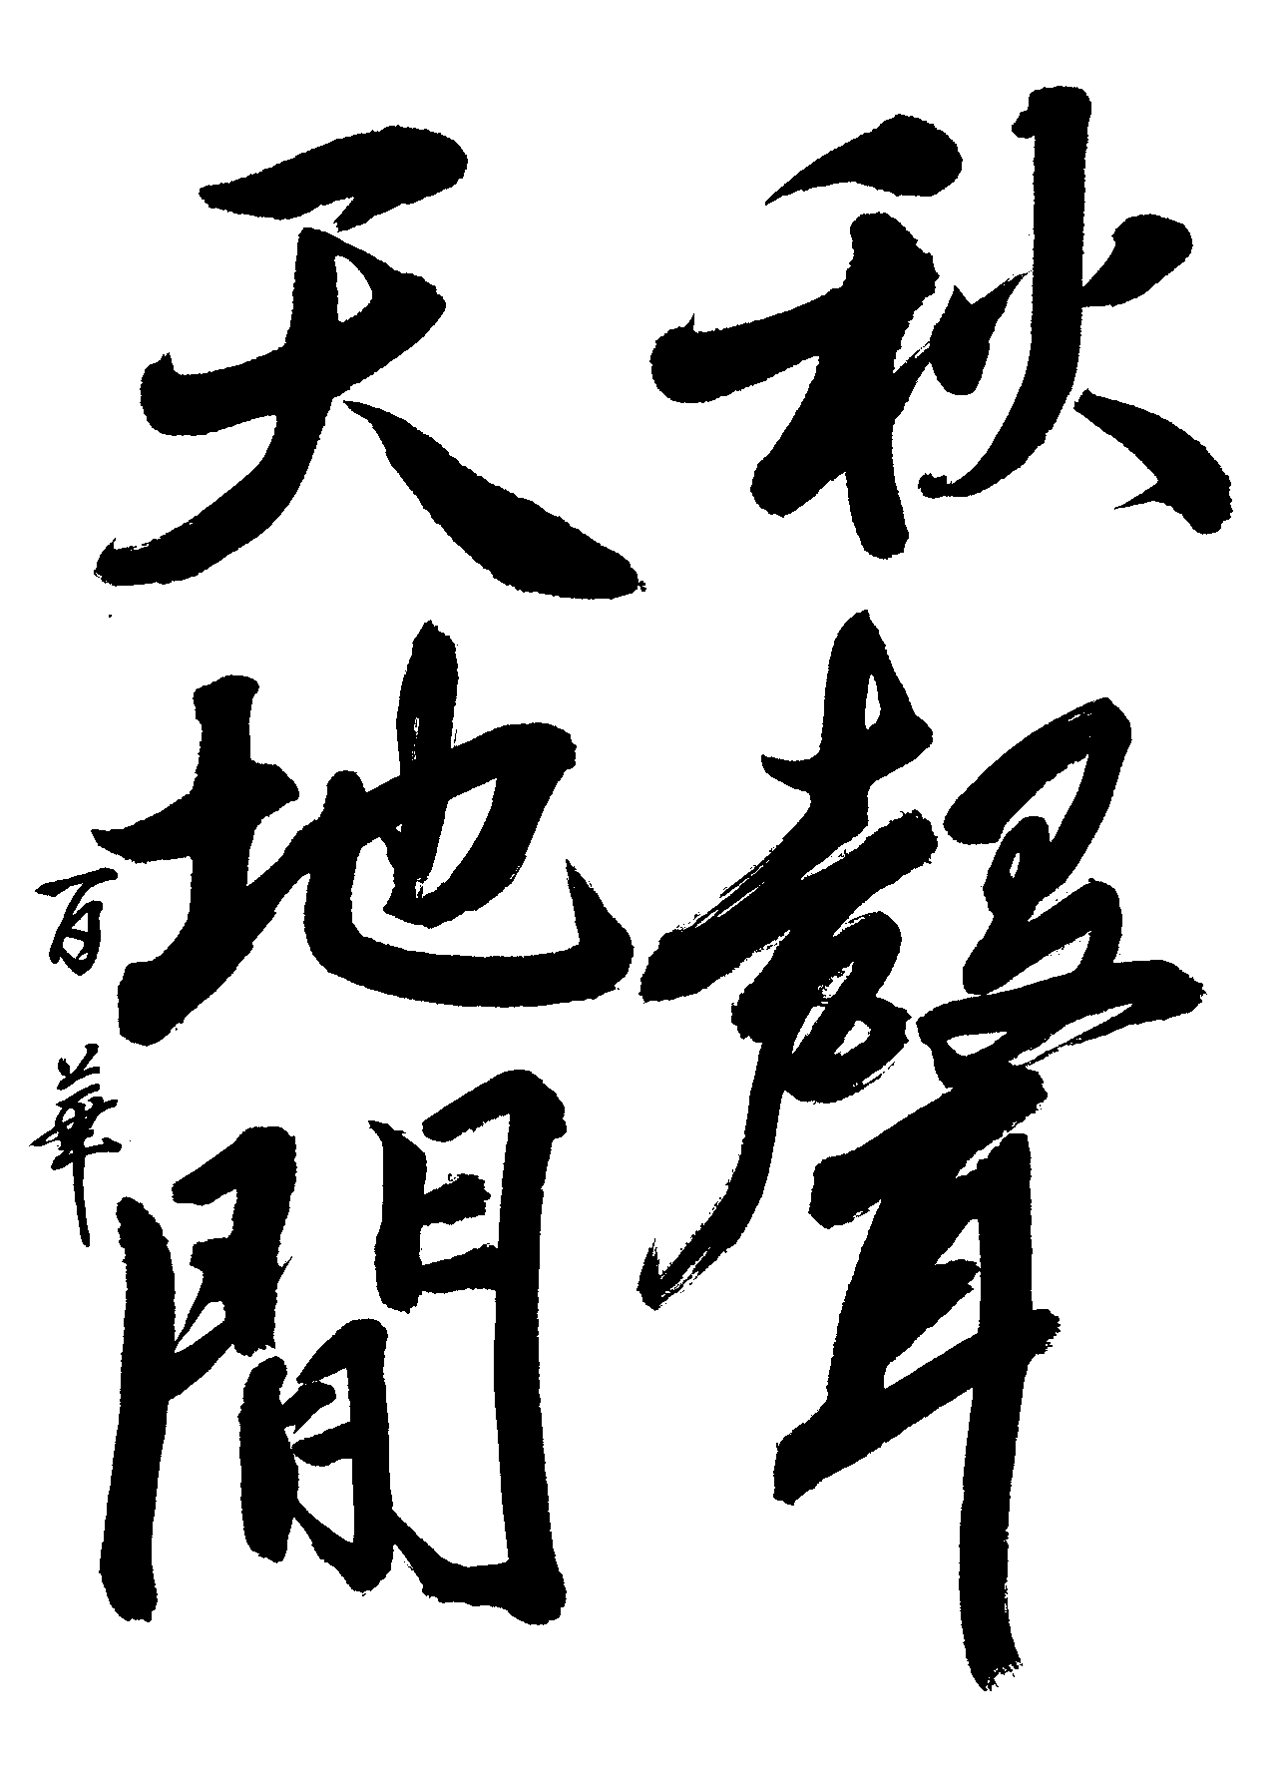 秋聲
天地間
百華